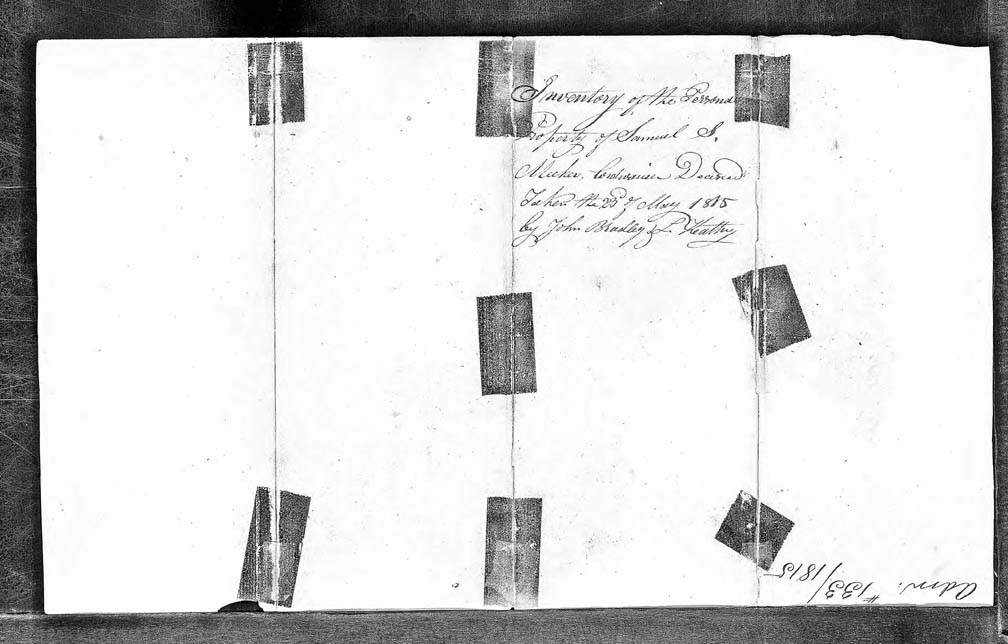 Inventory of the Personal
Property of Samuel S.
Meeker, Deceased
Taken the of May 1815
by John Bradley & L. Keathy
Adm. #133/1815